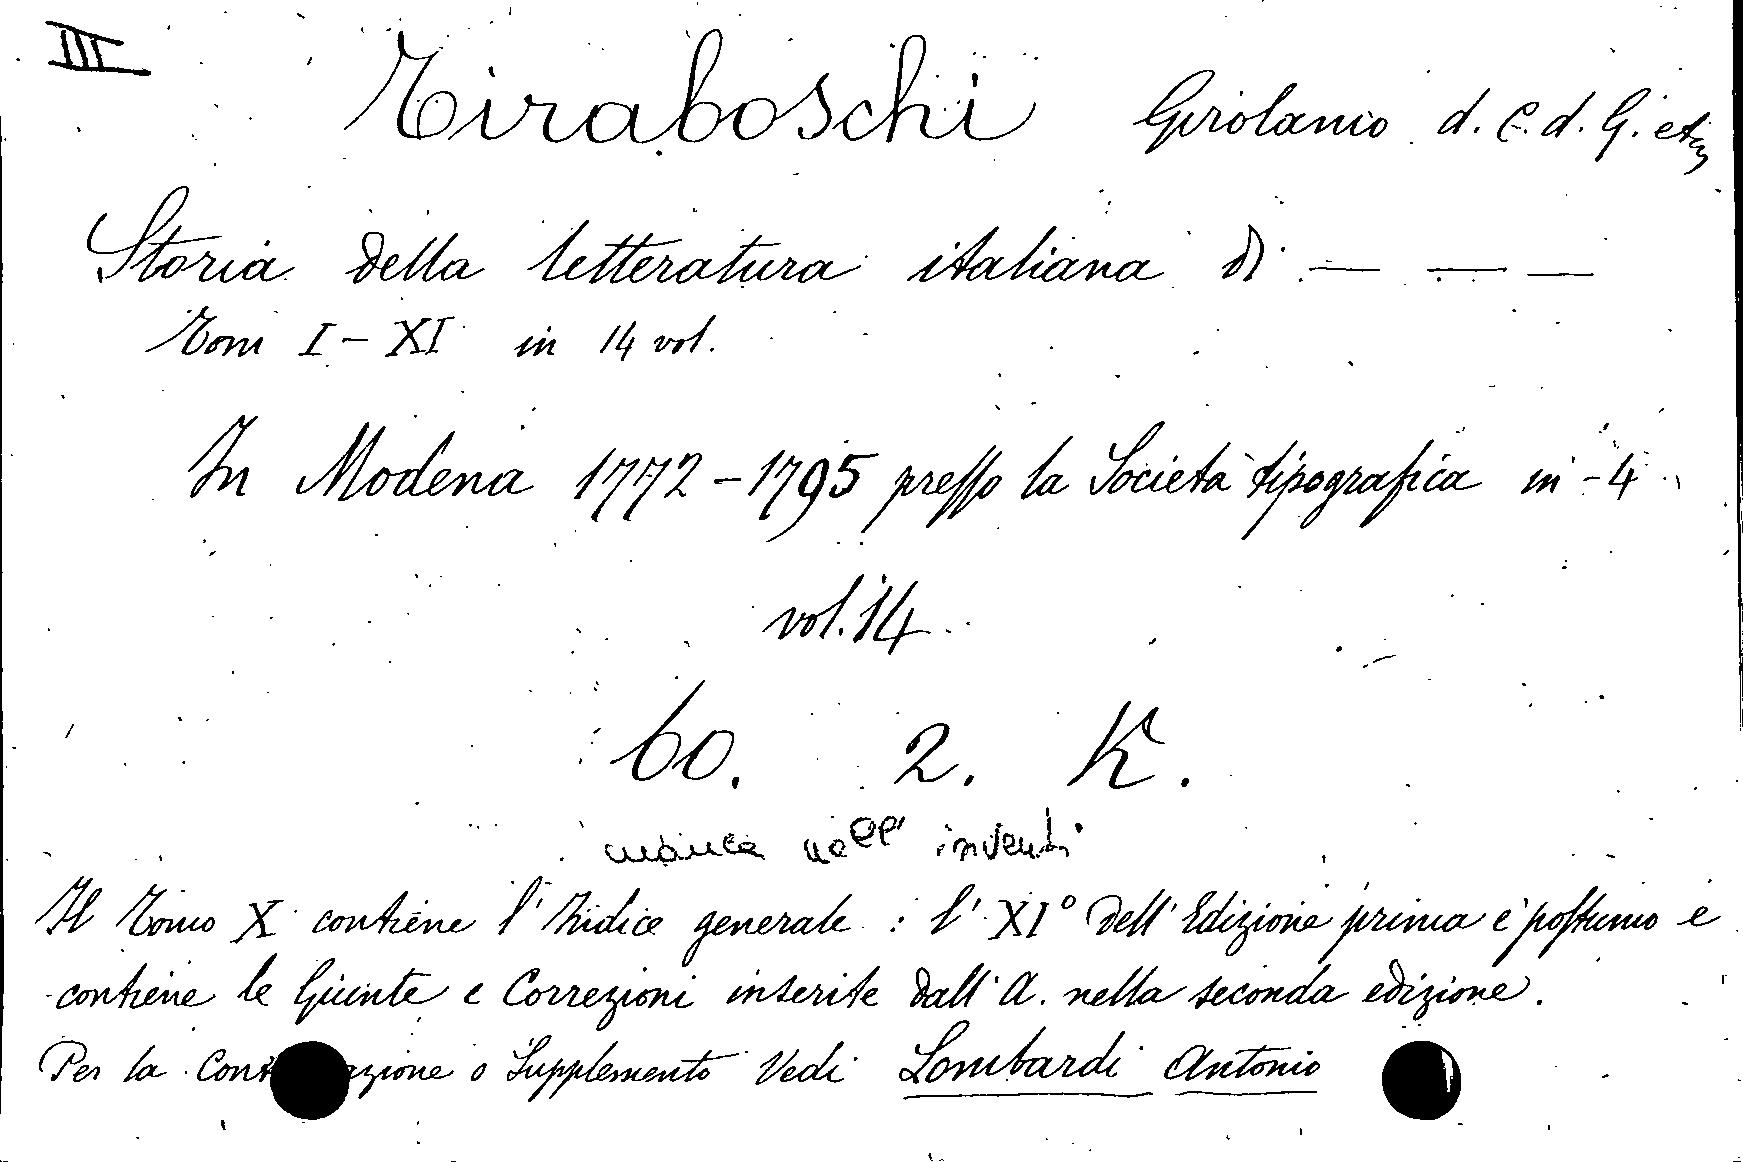 III
Tiraboschi Girolamo d. C. d. G. etc
Storia della letteratura italiana di — — —
Tomi I – XI in 14 vol.
In Modena 1772 – 1795 presso la Società tipografica in – 4
vol. 14
60. 2. K.
manca nell' inventi
Il Tomo X contiene l' Indice generale : l' XI° dell' Edizione prima è postumo e
contiene le Giunte e Correzioni inserite dall' A. nella seconda edizione.
Per la Cont azione o Supplemento Vedi Lombardi Antonio